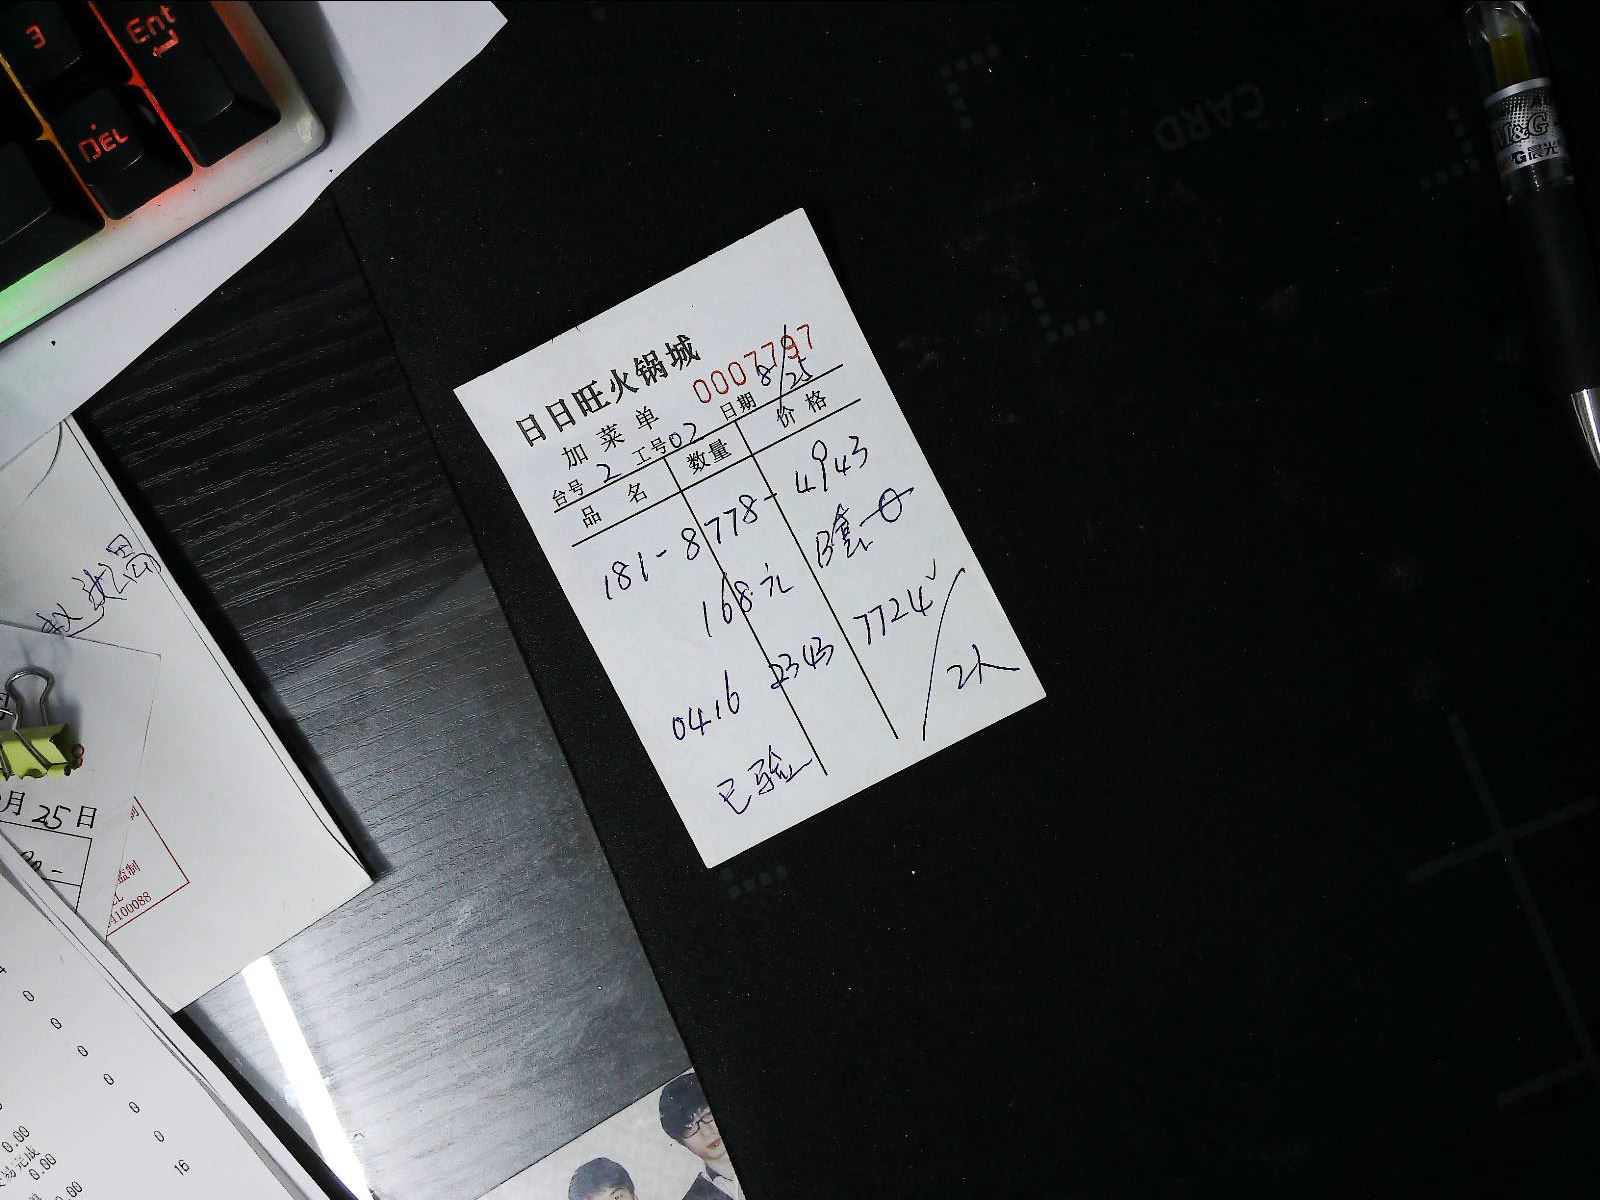 3
Ent
DEL
CARD
M&G
M&G晨光
日日旺火锅城
加菜单
0007797
台号 2 工号 02 日期 8/25
品名 数量 价格
181-8778-4943
168.元 B套
0416 2343 7724 ✓
2人
已验
月 25 日
监制
4100088
0
0
0
0
0
0
0.00
易完成
0.00
16